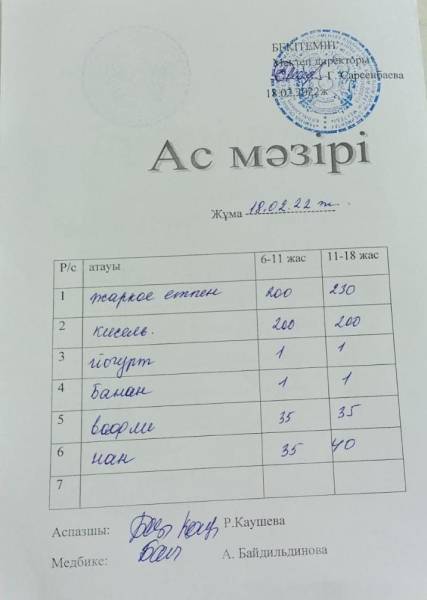 БЕКІТЕМІН:
Мектеп директоры
Г. Сарсенбаева
18.02.2022ж
Ас мәзірі
Жұма 18.02.22 ж.
Р/с атауы 6-11 жас 11-18 жас
1 жаркое етпен 200 250
2 кисель. 200 200
3 йогурт 1 1
4 Банан 1 1
5 вафли 35 35
6 нан 35 40
7
Аспазшы: Р.Каушева
Медбике: А. Байдильдинова